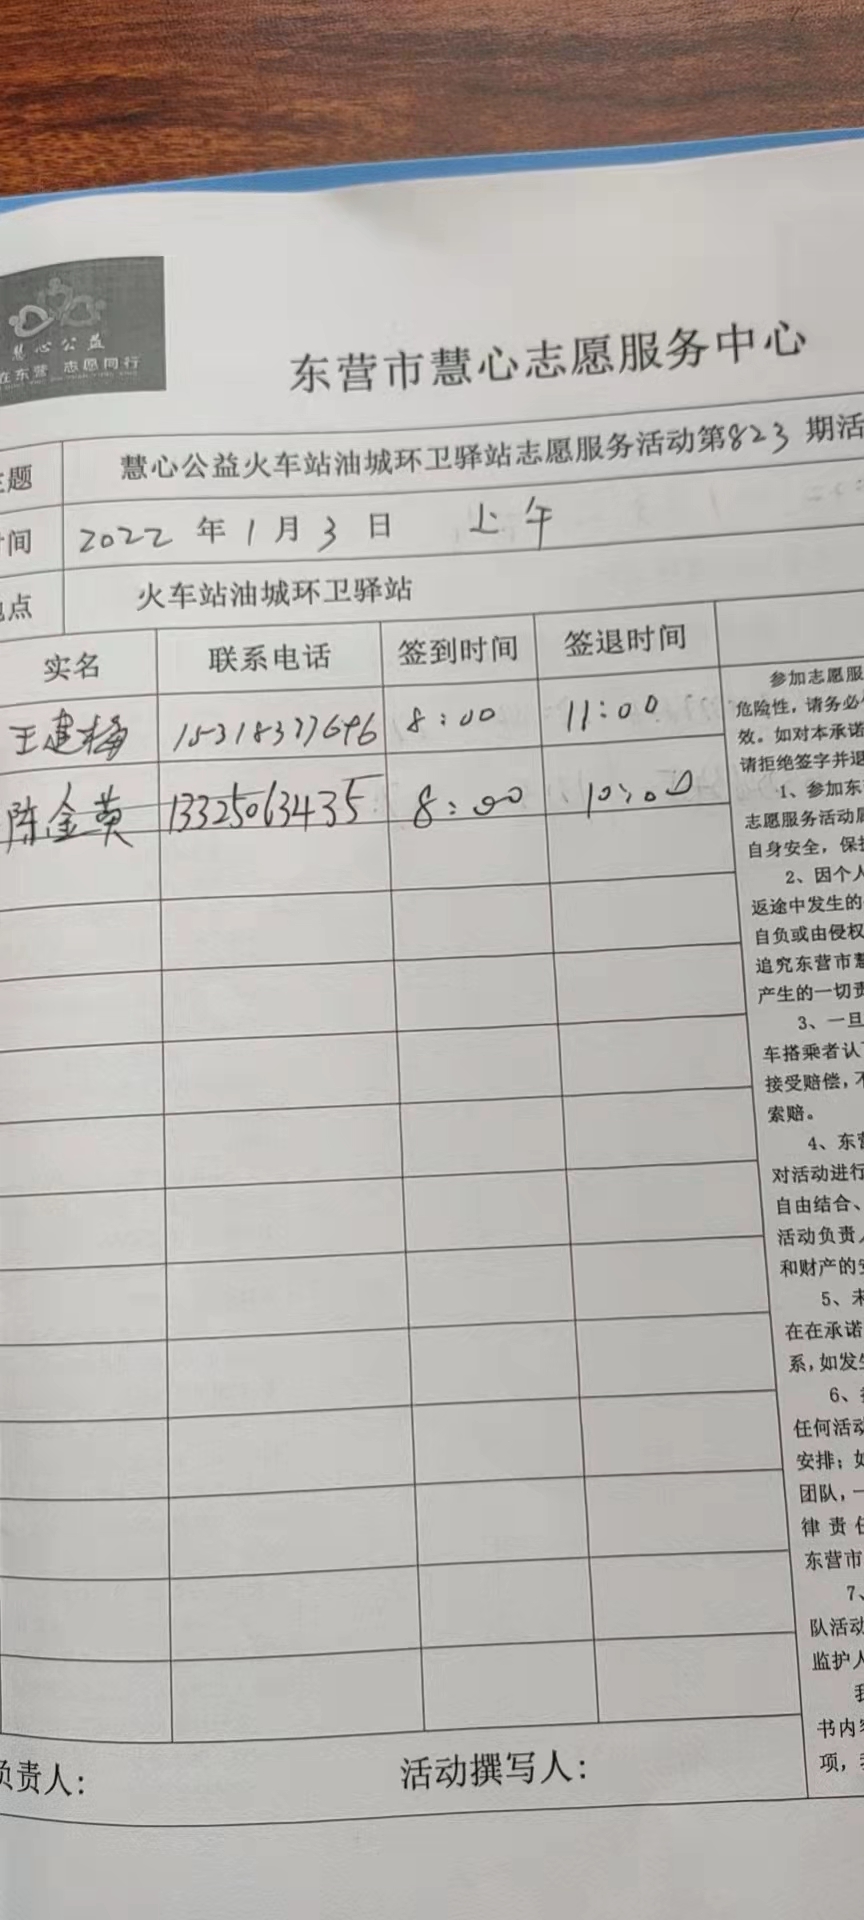 慧心公益
在东营 志愿同行
东营市慧心志愿服务中心
主题 慧心公益火车站油城环卫驿站志愿服务活动第823期活
时间 2022年1月3日 上午
地点 火车站油城环卫驿站
实名 联系电话 签到时间 签退时间
王建梅 15318377696 8:00 11:00
陈金英 13325063435 8:00 10:00
参加志愿服
危险性，请务必
效。如对本承诺
请拒绝签字并退
1、参加东
志愿服务活动
自身安全，保
2、因个人
返途中发生的
自负或由侵权
追究东营市慧
产生的一切责
3、一旦
车搭乘者认
接受赔偿，不
索赔。
4、东营
对活动进行
自由结合、
活动负责人
和财产的安
5、未
在在承诺
系，如发生
6、
任何活动
安排；如
团队，一
律责任
东营市
7、
队活动
监护人
我
书内容
项，
负责人： 活动撰写人：